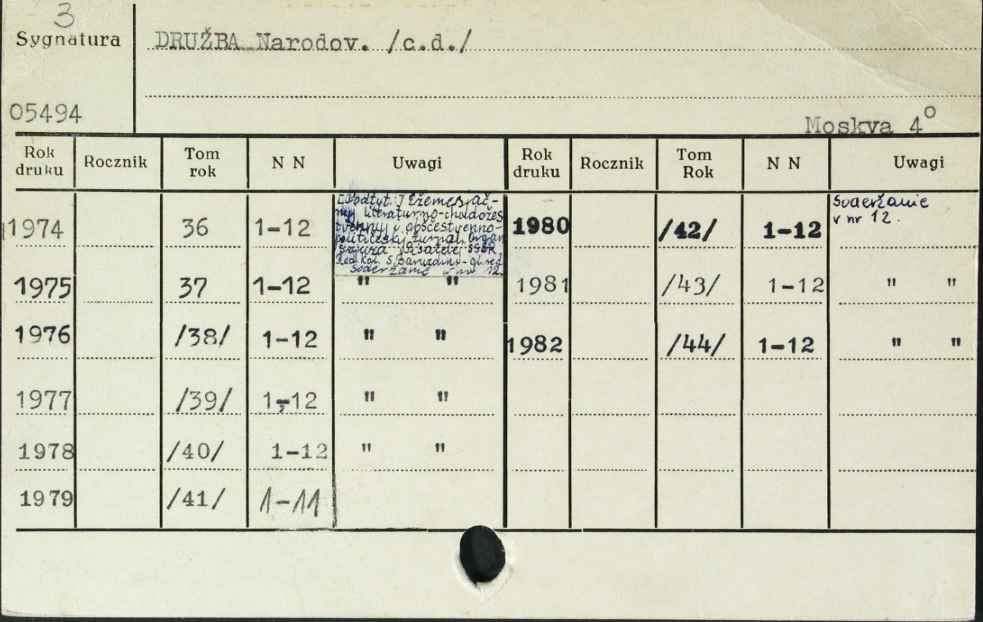 3
Sygnatura DRUŽBA Narodov. /c.d./
05494
Moskva 4°
Rok druku Rocznik Tom rok N N Uwagi Rok druku Rocznik Tom Rok N N Uwagi
1974 36 1-12
Podtyt.: Ežemesjač-
nyj literaturno-chudožest
vennyj i obščestvenno-
političeskij žurnal. Organ
Sojuza Pisatelej SSSR
Red. Kol. S. Baruzdin-gl. red.
Soderžanie v nr 12.
1980 /42/ 1-12 Soderžanie
v nr 12.
1975 37 1-12 " " 1981 /43/ 1-12 " "
1976 /38/ 1-12 " " 1982 /44/ 1-12 " "
1977 /39/ 1-12 " "
1978 /40/ 1-12 " "
1979 /41/ 1-11